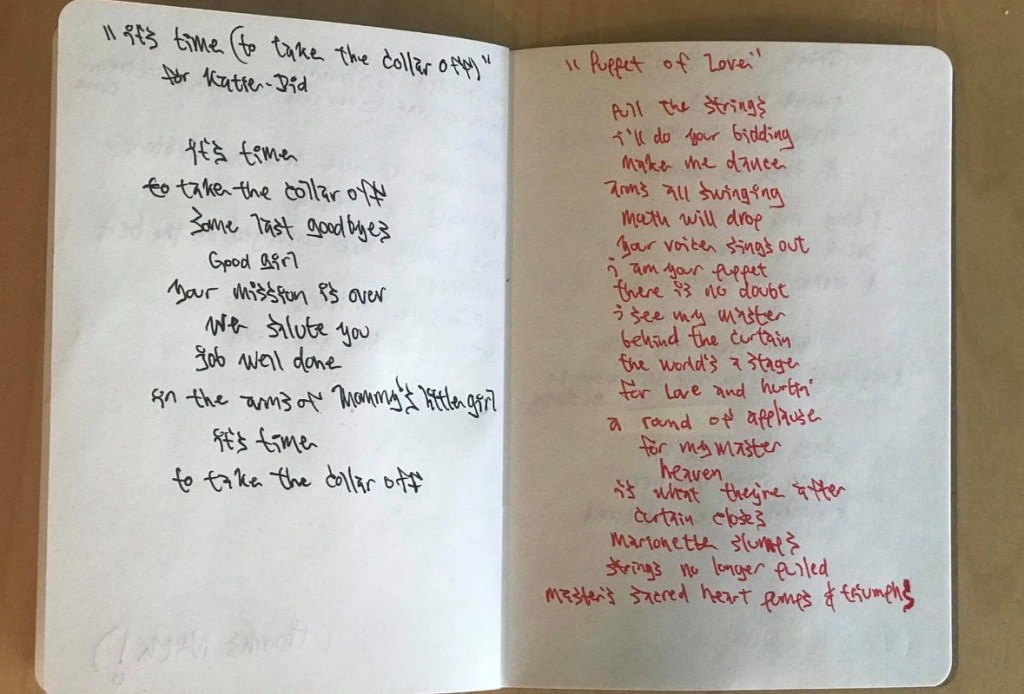 "it's time (to take the collar off)"
for Katie-Did
it's time
to take the collar off
Some last goodbyes
Good girl
Your mission is over
We salute you
job well done
in the arms of Mommy's little girl
it's time
to take the collar off
"Puppet of Love"
pull the strings
i'll do your bidding
make me dance
arms all swinging
mouth will drop
Your voice sings out
i am your puppet
there is no doubt
i see my master
behind the curtain
the world's a stage
for Love and hurtin'
a round of applause
for my master
heaven
is what they're after
curtain closes
Marionette slumps
strings no longer pulled
master's sacred heart pumps & triumphs